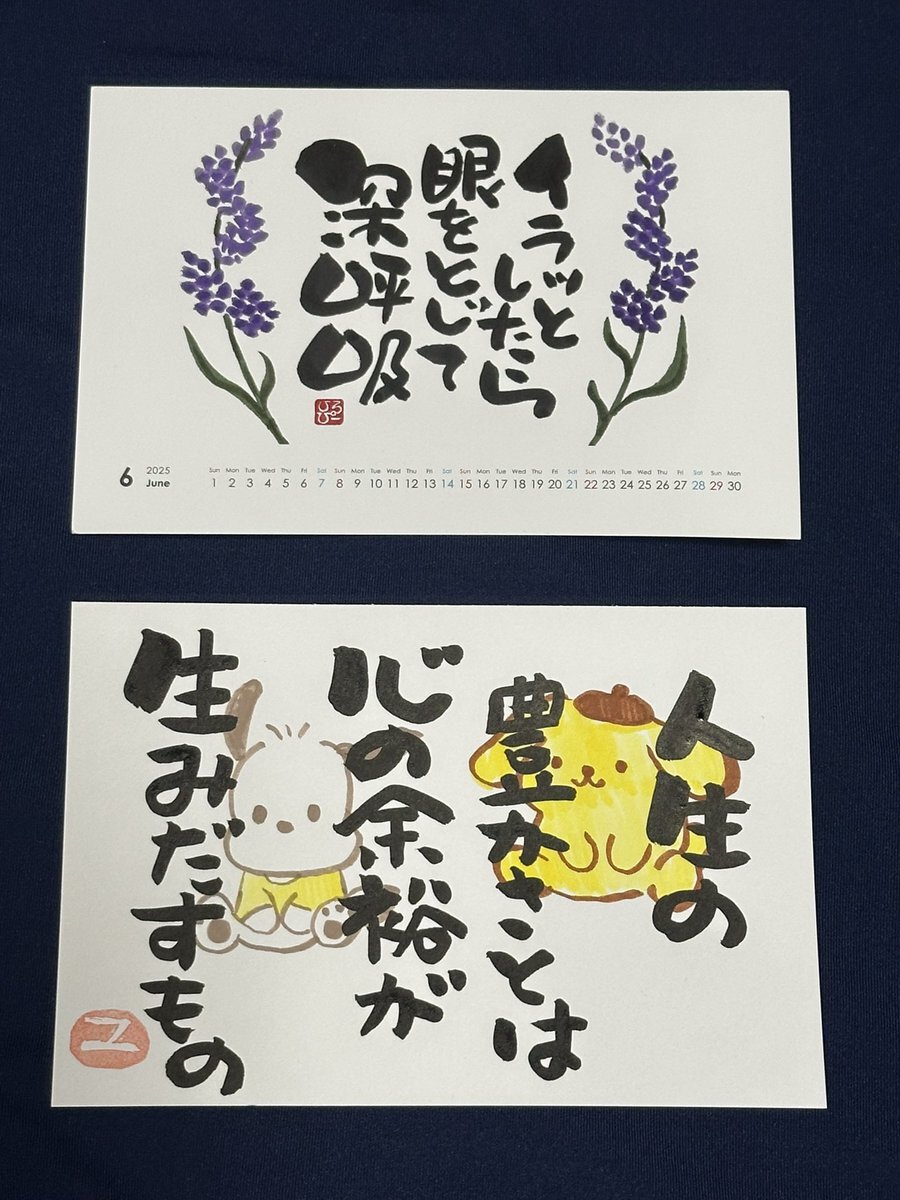 イラッと
したら
眼をとじて
深呼吸
6
2025
June
Sun Mon Tue Wed Thu Fri Sat Sun Mon Tue Wed Thu Fri Sat Sun Mon Tue Wed Thu Fri Sat Sun Mon Tue Wed Thu Fri Sat Sun Mon
1 2 3 4 5 6 7 8 9 10 11 12 13 14 15 16 17 18 19 20 21 22 23 24 25 26 27 28 29 30
人生の
豊かさとは
心の余裕が
生みだすもの
ユ